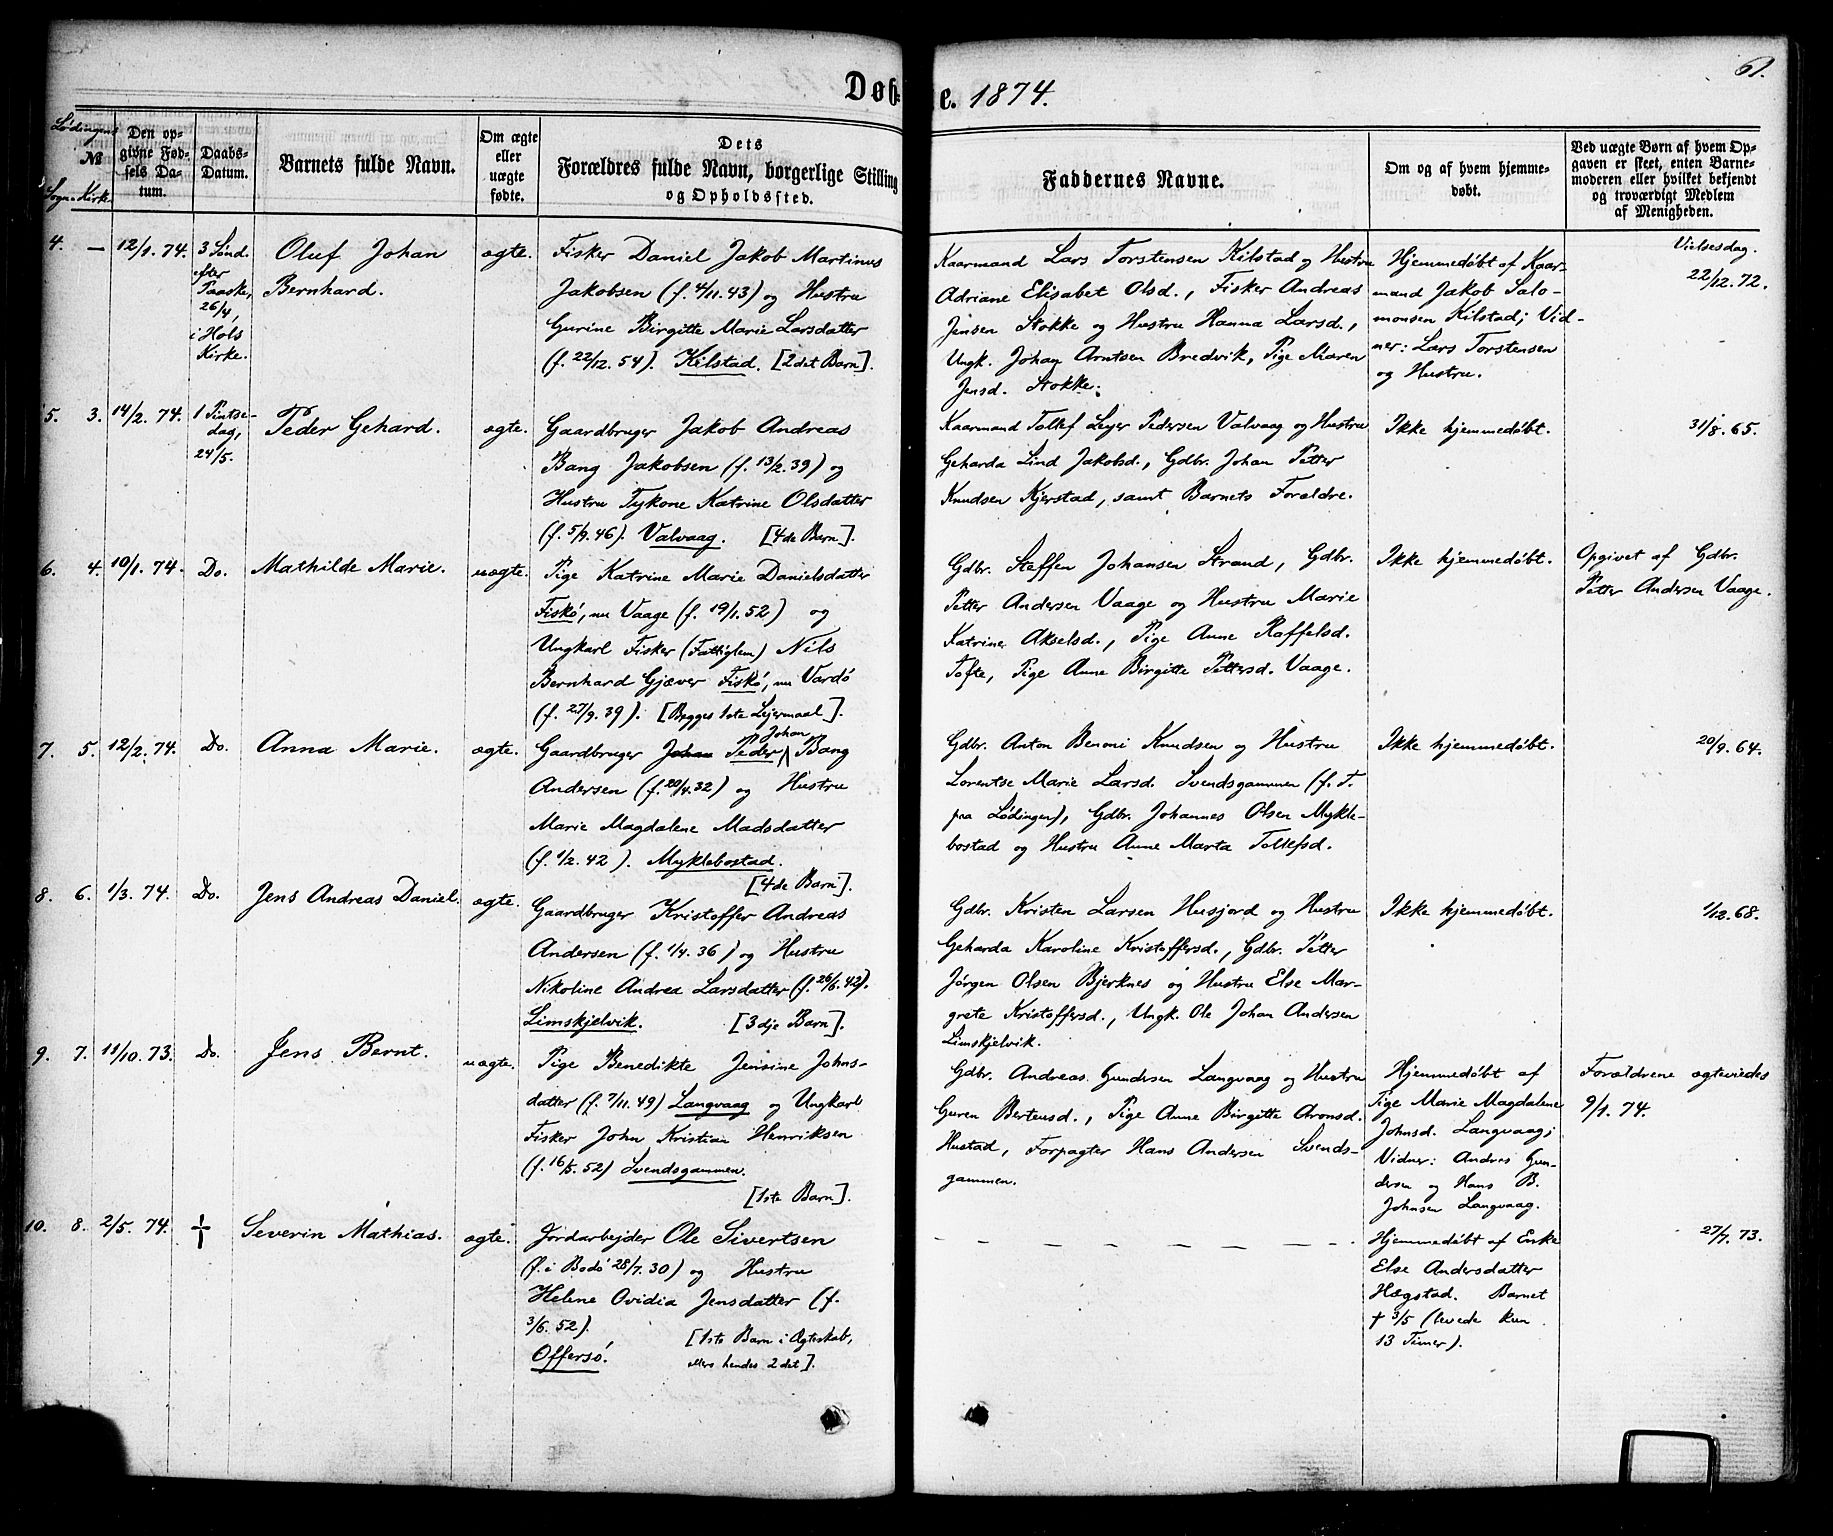 Døbte. 1874.
61.
Lødingens
№
Sogn. Kirke.
Den op-
givne Fød-
sels Da-
tum.
Daabs-
Datum.
Barnets fulde Navn.
Om ægte
eller
uægte
fødte.
Dets
Forældres fulde Navn, borgerlige Stilling
og Opholdssted.
Faddernes Navne.
Om og af hvem hjemme-
døbt.
Ved uægte Børn af hvem Op-
gaven er skeet, enten Barne-
moderen eller hvilket bekjendt
og troværdigt Medlem
af Menigheden.
4. — 12/1. 74.
3 Sønd.
efter
Paaske,
26/4,
i Hols
Kirke.
Oluf Johan
Bernhard.
ægte.
Fisker Daniel Jakob Martinus
Jakobsen (f. 4/11. 43) og Hustru
Gurine Birgitte Marie Larsdatter
(f. 22/12. 54). Kilstad. [2det Barn].
Kaarmand Lars Torstensen Kilstad og Hustru
Adriane Elisabet Olsd., Fisker Andreas
Jensen Stokke og Hustru Hanna Larsd.,
Ungk. Johan Arntsen Bredvik, Pige Maren
Jensd. Stokke.
Hjemmedøbt af Kaar-
mand Jakob Salo-
monsen Kilstad; Vid-
ner: Lars Torstensen
og Hustru.
Vielsesdag.
22/12. 72.
5. 3. 14/2. 74.
1 Pintse-
dag,
24/5.
Peder Gehard.
ægte.
Gaardbruger Jakob Andreas
Bang Jakobsen (f. 13/2. 39) og
Hustru Tykone Katrine Olsdatter
(f. 5/9. 46). Valvaag. [4de Barn].
Kaarmand Tollef Leyer Pedersen Valvaag og Hustru
Geharda Lind Jakobsd., Gdbr. Johan Petter
Knudsen Kjerstad, samt Barnets Forældre.
Ikke hjemmedøbt.
31/8. 65.
6. 4. 10/1. 74.
Do.
Mathilde Marie.
uægte.
Pige Katrine Marie Danielsdatter
Fiskö, nu Vaage (f. 19/1. 52) og
Ungkarl Fisker (Fattiglem) Nils
Bernhard Gjæver Fiskö, nu Vardö
(f. 27/9. 39). [Begges 1ste Lejermaal].
Gdbr. Steffen Johansen Strand, Gdbr.
Petter Andersen Vaage og Hustru Marie
Katrine Akselsd., Pige Anne Raffelsd.
Tofte, Pige Anne Birgitte Pettersd. Vaage.
Ikke hjemmedøbt.
Opgivet af Gdbr.
Petter Andersen Vaage.
7. 5. 12/2. 74.
Do.
Anna Marie.
ægte.
Johan
Gaardbruger Johan Peder Bang
Andersen (f. 20/4. 32) og Hustru
Marie Magdalene Madsdatter
(f. 1/2. 42). Myklebostad.
[4de Barn].
Gdbr. Anton Benoni Knudsen og Hustru
Lorentse Marie Larsd. Svendsgammen (f. T.
fra Lødingen), Gdbr. Johannes Olsen Mykle-
bostad og Hustru Anne Marta Tollefsd.
Ikke hjemmedøbt.
20/9. 64.
8. 6. 1/3. 74.
Do.
Jens Andreas Daniel.
ægte.
Gaardbruger Kristoffer Andreas
Andersen (f. 1/4. 36) og Hustru
Nikoline Andrea Larsdatter (f. 26/6. 42).
Limskjelvik. [3dje Barn].
Gdbr. Kristen Larsen Husjord og Hustru
Geharda Karoline Kristoffersd., Gdbr. Petter
Jørgen Olsen Bjerknes og Hustru Else Mar-
grete Kristoffersd., Ungk. Ole Johan Andersen
Limskjelvik.
Ikke hjemmedøbt.
1/12. 68.
9. 7. 11/10. 73.
Do.
Jens Bernt.
uægte.
Pige Benedikte Jensine Johns-
datter (f. 7/11. 49) Langvaag og Ungkarl
Fisker John Kristian Henriksen
(f. 16/5. 52) Svendsgammen.
[1ste Barn].
Gdbr. Andreas Gundersen Langvaag og Hustru
Guren Berteusd., Pige Anne Birgitte Aronsd.
Hustad, Forpagter Hans Andersen Svends-
gammen.
Hjemmedøbt af
Pige Marie Magdalene
Johnsd. Langvaag;
Vidner: Andras Gun-
dersen og Hans B.
Johnsen Langvaag.
Forældrene ægteviedes
9/1. 74.
10. 8. 2/5. 74.
†
Severin Mathias.
ægte.
Jordarbejder Ole Sivertsen
(f. i Bodö 28/7. 30) og Hustru
Helene Ovidia Jensdatter (f.
3/6. 52). [1ste Barn i Ægteskab,
Offersö. ellers hendes 2det].
Hjemmedøbt af Enke
Else Andersdatter
Hægstad. Barnet
† 3/5 (levede kun
13 Timer).
27/7. 73.